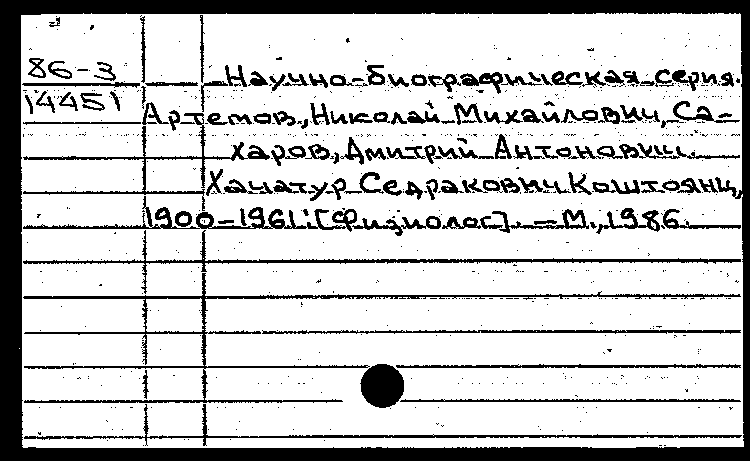 86-3
Научно-биографическая серия.
14451
Артемов, Николай Михайлович, Са-
харов, Дмитрий Антонович.
Хачатур Седракович Коштоянц,
1900-1961: [Физиолог]. — М., 1986.